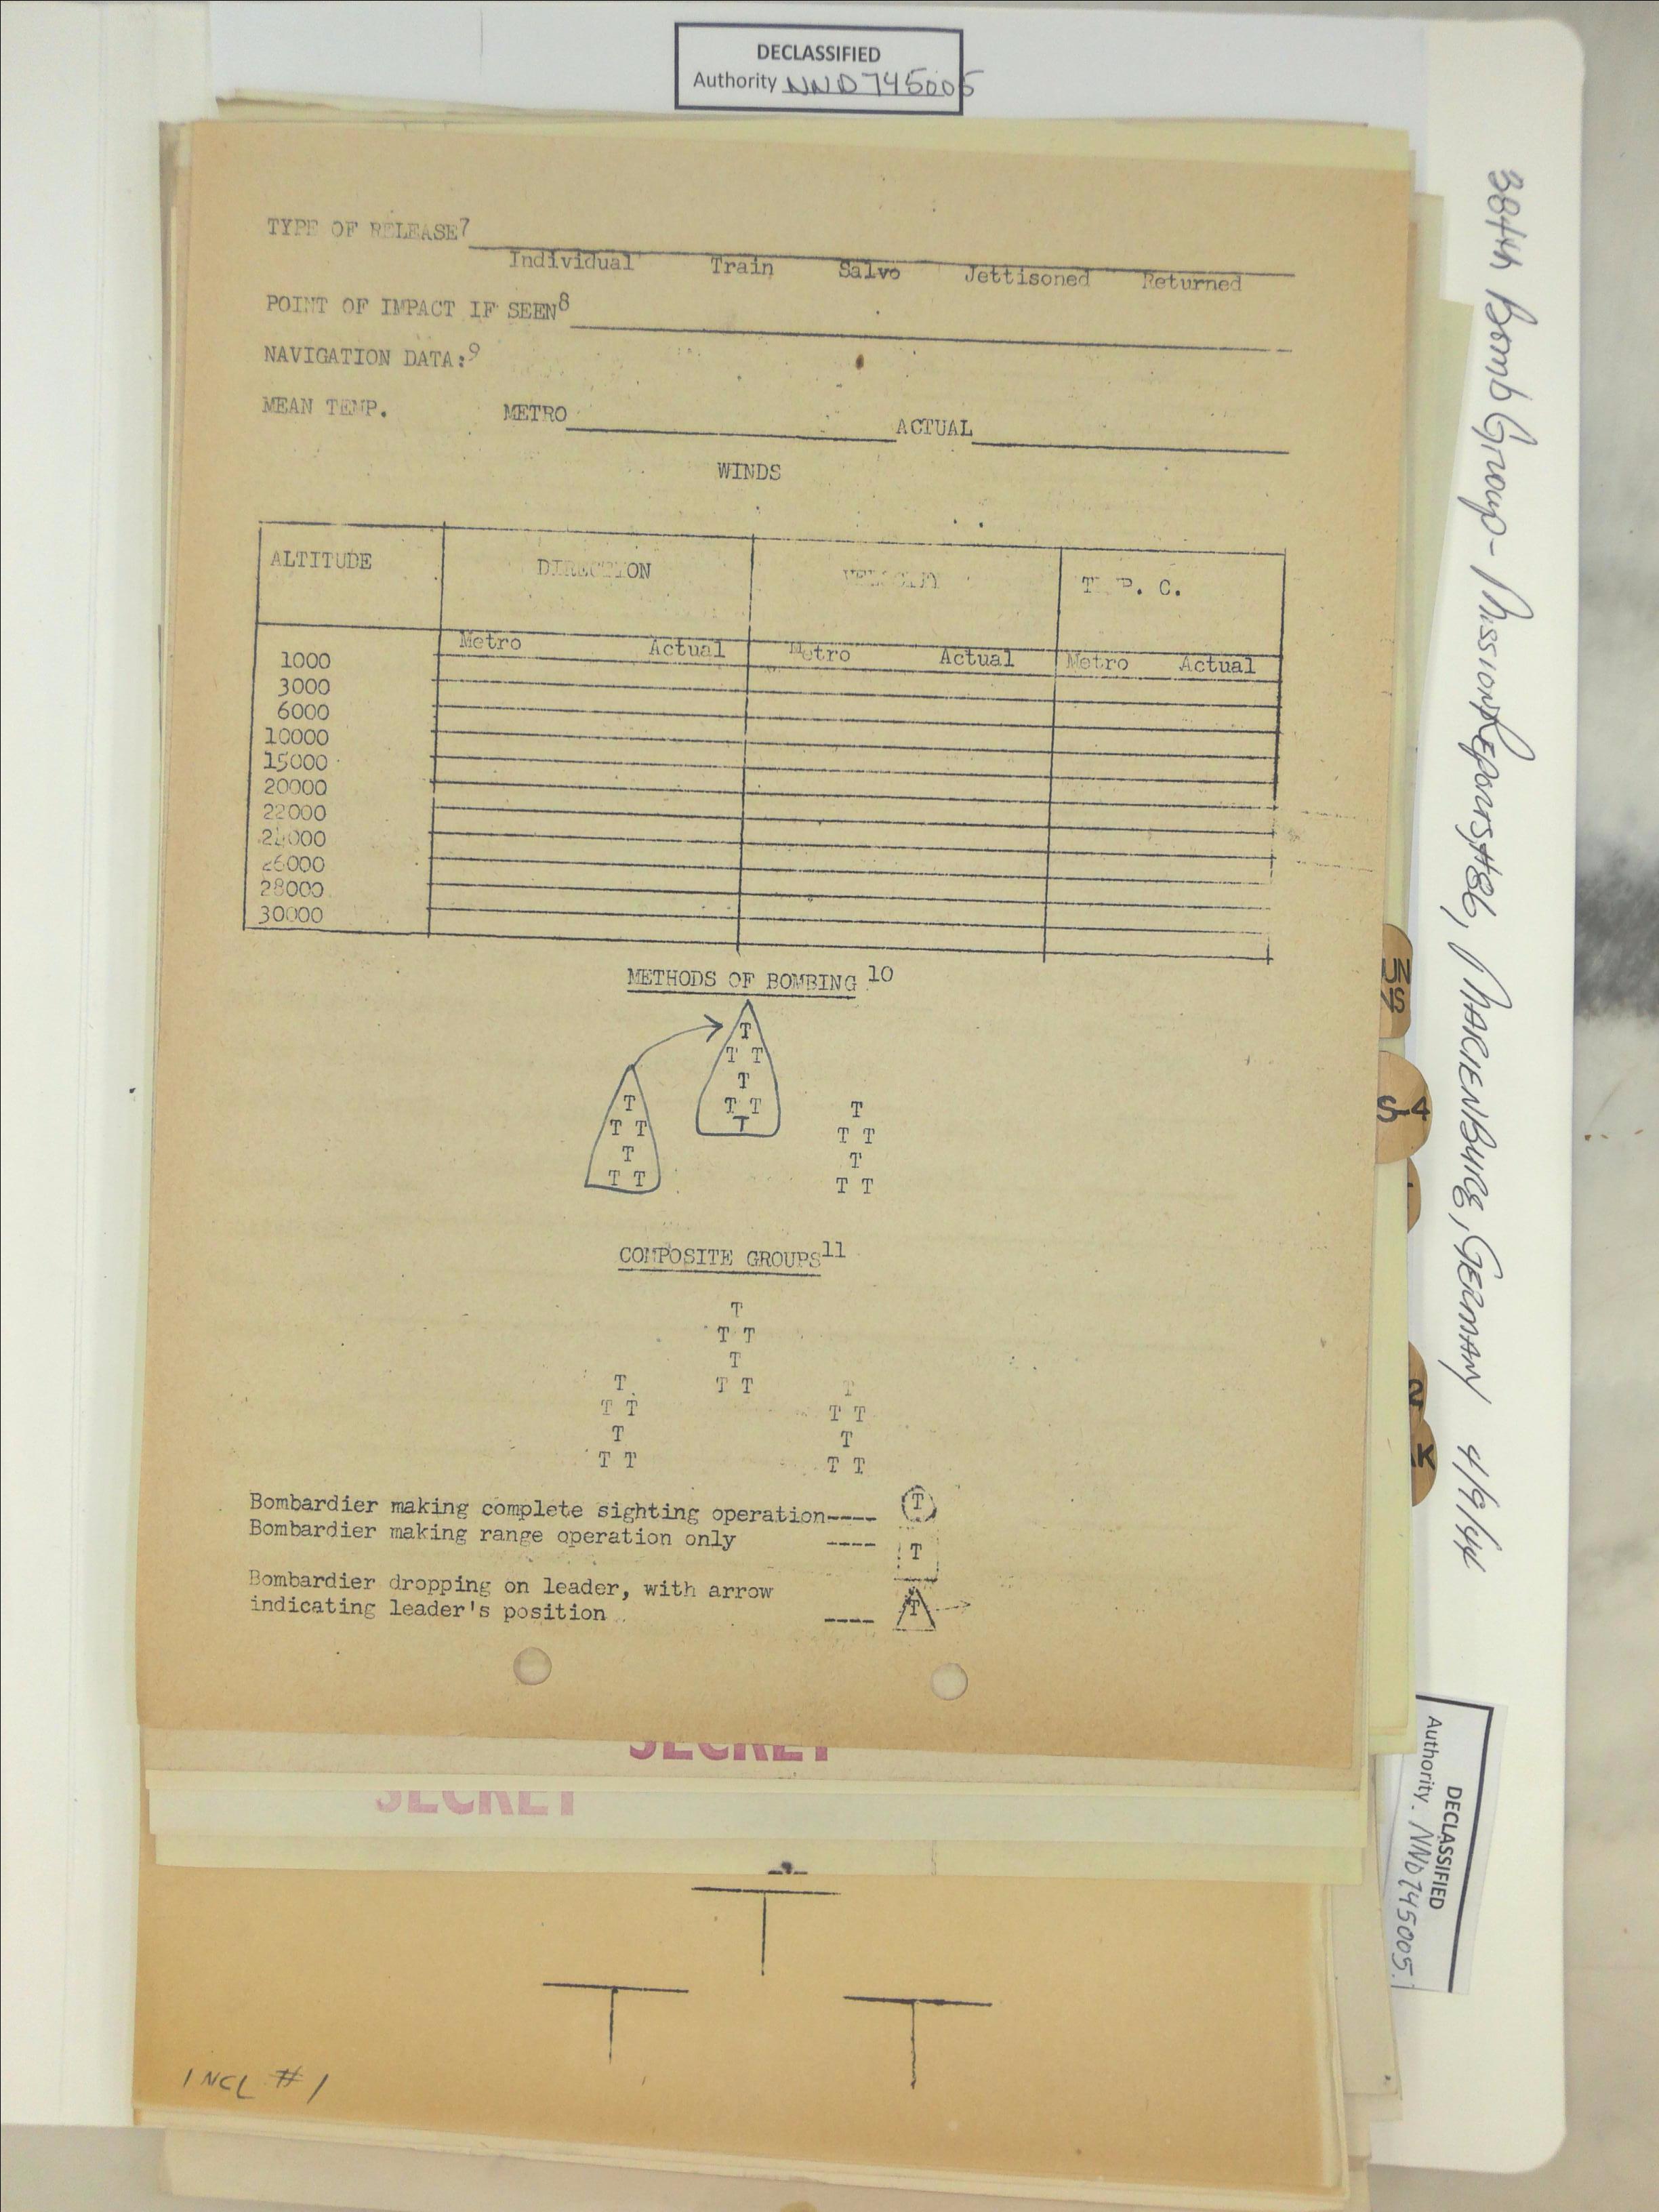 DECLASSIFIED
Authority NND 745005
TYPE OF RELEASE7
Individual Train Salvo Jettisoned Returned
POINT OF IMPACT IF SEEN8
NAVIGATION DATA:9
MEAN TEMP. METRO ACTUAL
WINDS
ALTITUDE DIRECTION VELOCITY TEMP. C.
Metro Actual Metro Actual Metro Actual
1000
3000
6000
10000
15000
20000
22000
24000
26000
28000
30000
METHODS OF BOMBING 10
T
T T
T
T T
T
T
T T
T
T T
T
T T
T
T T
COMPOSITE GROUPS11
T
T T
T
T T
T
T T
T
T T
T
T T
T
T T
Bombardier making complete sighting operation---- T
Bombardier making range operation only ---- T
Bombardier dropping on leader, with arrow
indicating leader's position ---- T
SECRET
SECRET
T
T T
INCL #1
384th Bomb Group - Mission Reports #86, MARIENBURG, GERMANY 4/9/44
UN
S-4
2
K
DECLASSIFIED
Authority NND 745005